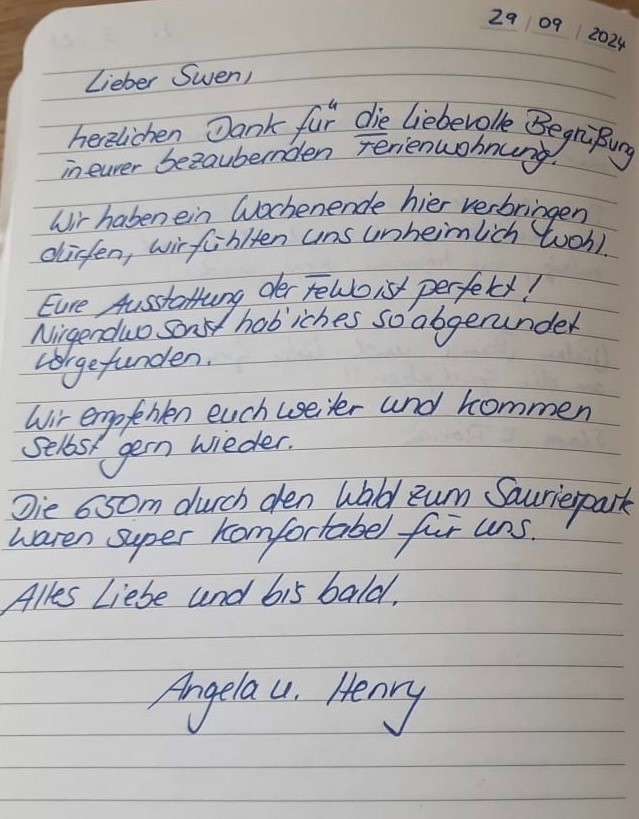 29/09/2024
Lieber Swen,
herzlichen Dank für die liebevolle Begrüßung
in eurer bezaubernden Ferienwohnung.
Wir haben ein Wochenende hier verbringen
dürfen, wir fühlten uns unheimlich wohl.
Eure Ausstattung der FeWo ist perfekt!
Nirgendwo sonst hab' ich es so abgerundet
vorgefunden.
Wir empfehlen euch weiter und kommen
selbst gern wieder.
Die 650m durch den Wald zum Saurierpark
waren super komfortabel für uns.
Alles Liebe und bis bald.
Angela u. Henry